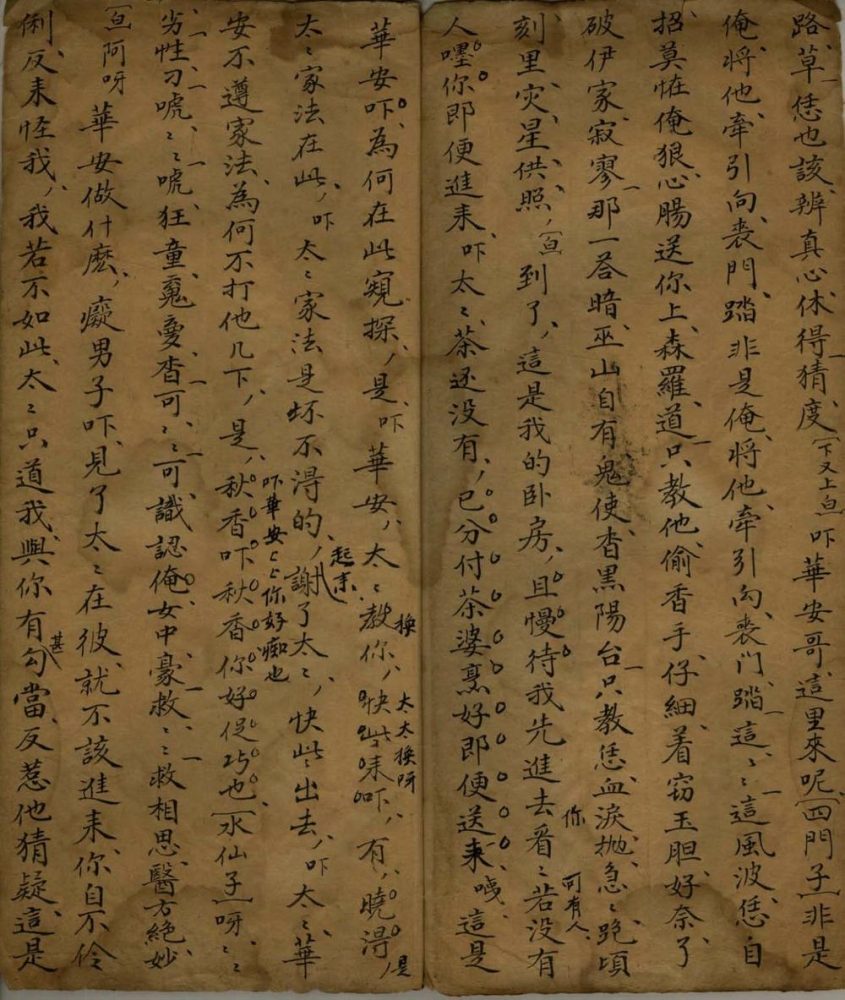 路草恁也該辨真心休得猜度〔下又上旦〕吓華安哥這里來呢〔四門子〕非是
俺將他牽引向喪門踏非是俺將他牽引向喪门踏這〻這風波恁自
招莫怪俺狠心腸送你上森羅道只教他偷香手仔細着窃玉胆好奈了
破伊家寂寥那一荅暗巫山自有鬼使杳黑陽台只教恁血淚抛急〻跑頃
刻里灾星供照〔旦〕到了這是我的卧房且慢待我先進去看〻若没有
你
可有人
人嚜你即便進来吓太〻茶还没有已分付茶婆烹好即便送来哦這是
華安吓為何在此窺探是吓華安太〻教你快些来吓有曉得是
换
太太换呀
太〻家法在此吓太〻家法是坏不淂的謝了太〻快些出去吓太〻華
起来
安不遵家法為何不打他几下是秋香吓秋香你好促巧也〔水仙子〕呀〻〻
吓華安〻〻你好痴也
劣性刁唬〻〻唬狂童䰟夢杳可〻〻可識認俺女中豪救〻〻救相思醫方絶妙
〔旦〕阿呀華安做什麽癡男子吓見了太〻在彼就不該進来你自不伶
俐反来怪我我若不如此太〻只道我與你有勾當反惹他猜疑這是
甚